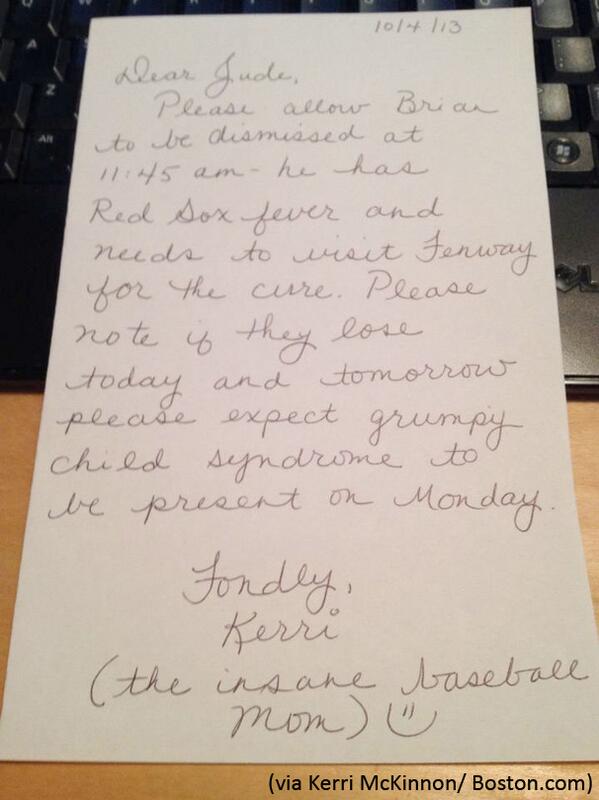 10/4/13
Dear Jude,
Please allow Brian
to be dismissed at
11:45 am - he has
Red Sox fever and
needs to visit Fenway
for the cure. Please
note if they lose
today and tomorrow
please expect grumpy
child syndrome to
be present on Monday.
Fondly,
Kerri
(the insane baseball
Mom)
(via Kerri McKinnon/ Boston.com)